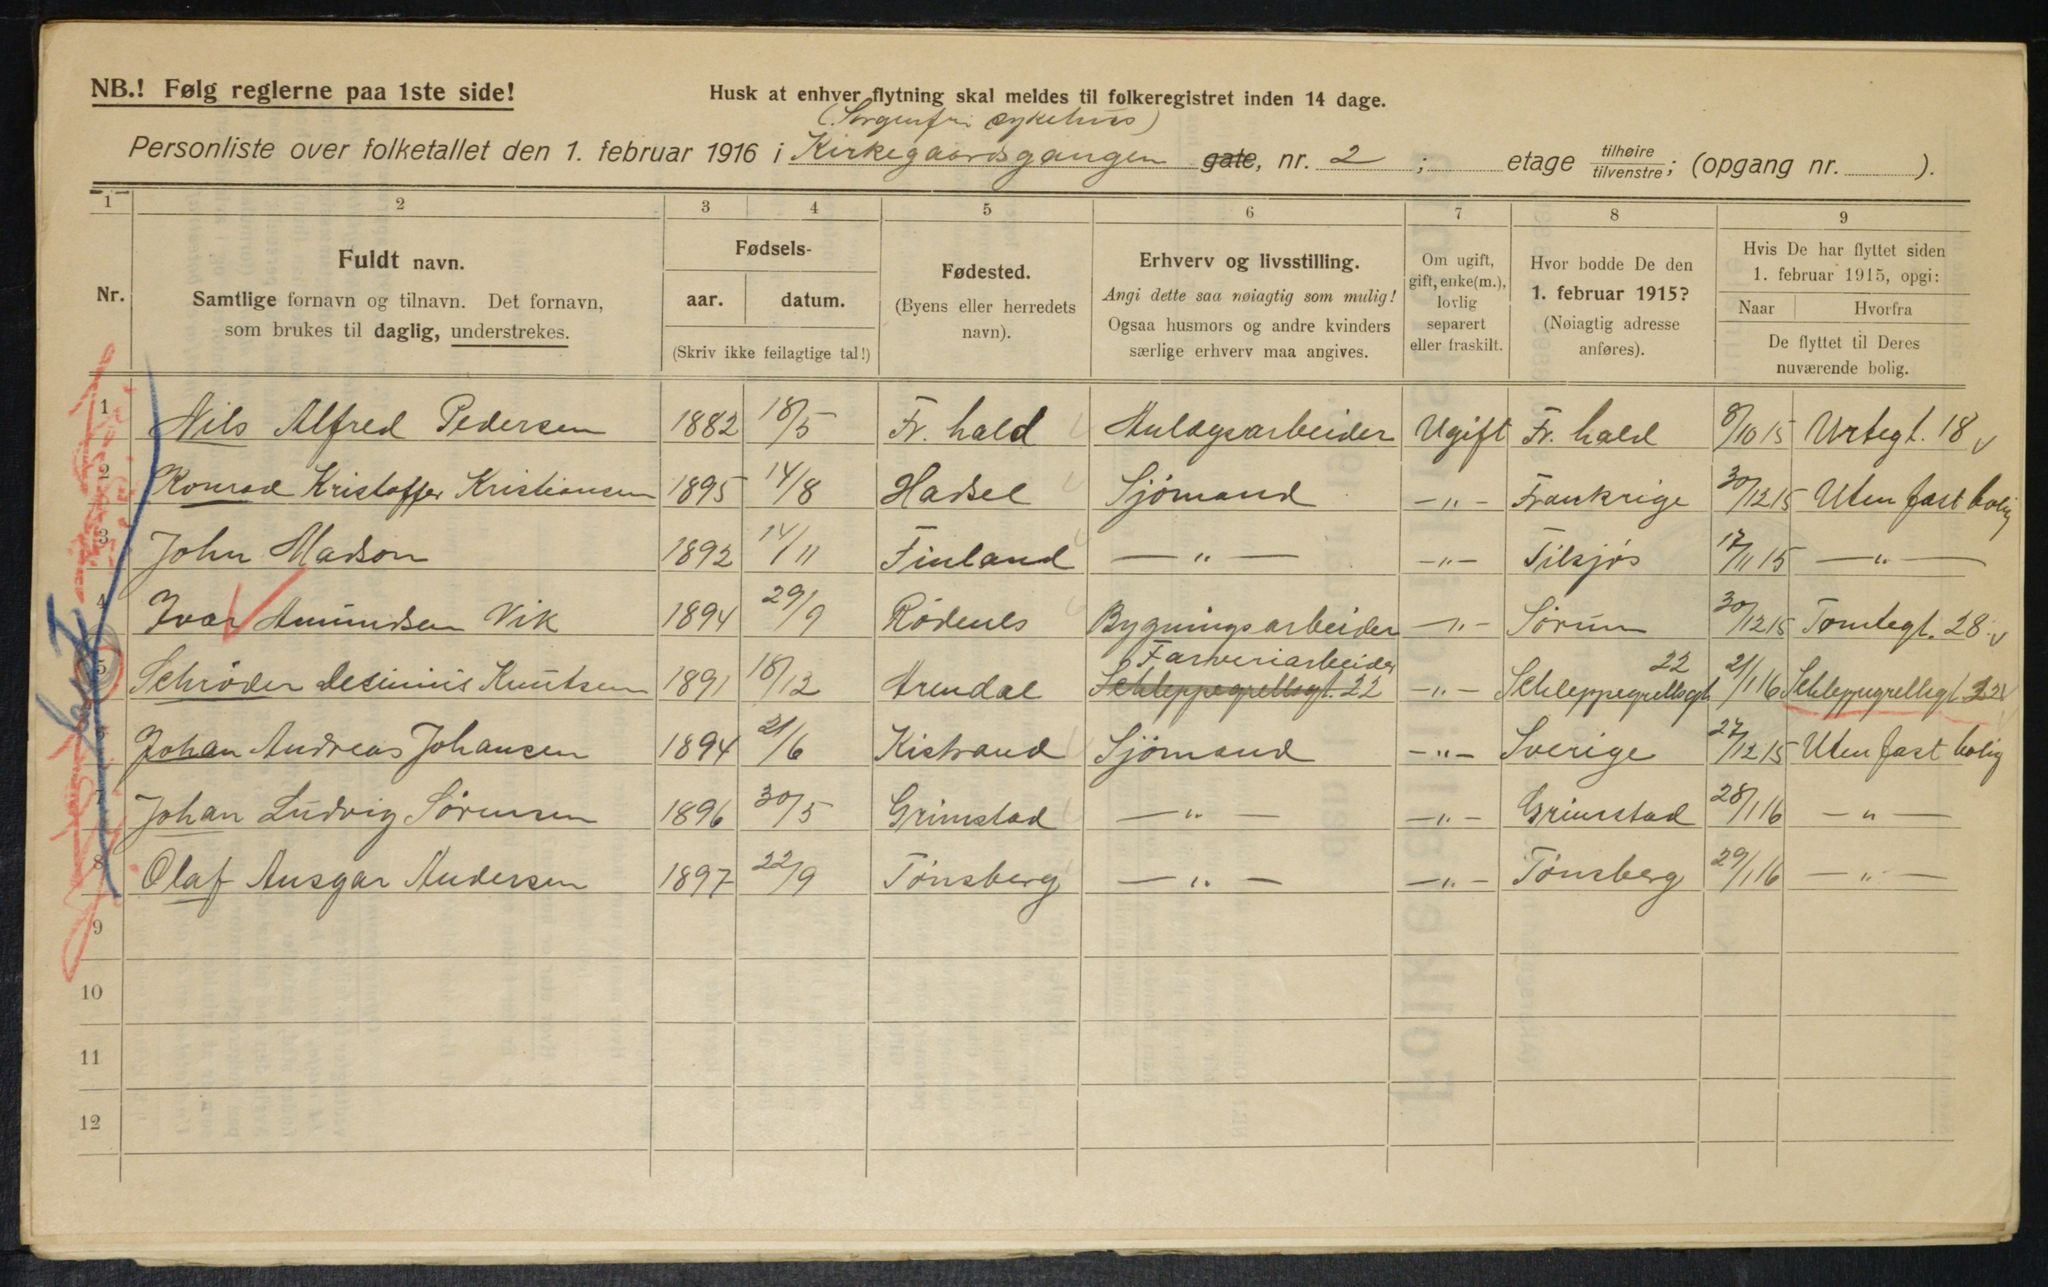 NB.! Følg reglerne paa 1ste side!
Husk at enhver flytning skal meldes til folkeregistret inden 14 dage.
(Sorgenfri sykehus)
Personliste over folketallet den 1. februar 1916 i Kirkegaardsgangen gate, nr. 2 ; etage tilhøire/tilvenstre; (opgang nr. ).
1 2 3 4 5 6 7 8 9
Nr.
Fuldt navn.
Samtlige fornavn og tilnavn. Det fornavn,
som brukes til daglig, understrekes.
Fødsels-
aar. datum.
(Skriv ikke feilagtige tal!)
Fødested.
(Byens eller herredets
navn).
Erhverv og livsstilling.
Angi dette saa nøiagtig som mulig!
Ogsaa husmors og andre kvinders
særlige erhverv maa angives.
Om ugift,
gift, enke(m.),
lovlig
separert
eller fraskilt.
Hvor bodde De den
1. februar 1915?
(Nøiagtig adresse
anføres).
Hvis De har flyttet siden
1. februar 1915, opgi:
Naar Hvorfra
De flyttet til Deres
nuværende bolig.
1 Nils Alfred Pedersen 1882 18/5 Fr. hald Anlægsarbeider Ugift Fr. hald 8/10 15 Urtegt. 18
2 Konrad Kristoffer Kristiansen 1895 14/8 Hadsel Sjömand —„— Frankrige 30/12 15 Uten fast bolig
3 John Madson 1892 14/11 Finland —„— —„— Tilsjøs 17/11 15 —„—
4 Ivar Amundsen Vik 1894 29/9 Rödenes Bygningsarbeider —„— Sørum 30/12 15 Tomtegt. 28
5 Schrøder Desimius Knutsen 1891 18/12 Arendal Schleppegrellsgt. 22 Farveriarbeider —„— Schleppegrellsgt 22 21/1 16 Schleppegrellsgt 22
6 Johan Andreas Johansen 1894 21/6 Kistrand Sjömand —„— Sverige 27/12 15 Uten fast bolig
7 Johan Ludvig Sørensen 1896 30/5 Grimstad —„— —„— Grimstad 28/1 16 —„—
8 Olaf Ansgar Andersen 1897 22/9 Tønsberg —„— —„— Tønsberg 29/1 16 —„—
9
10
11
12